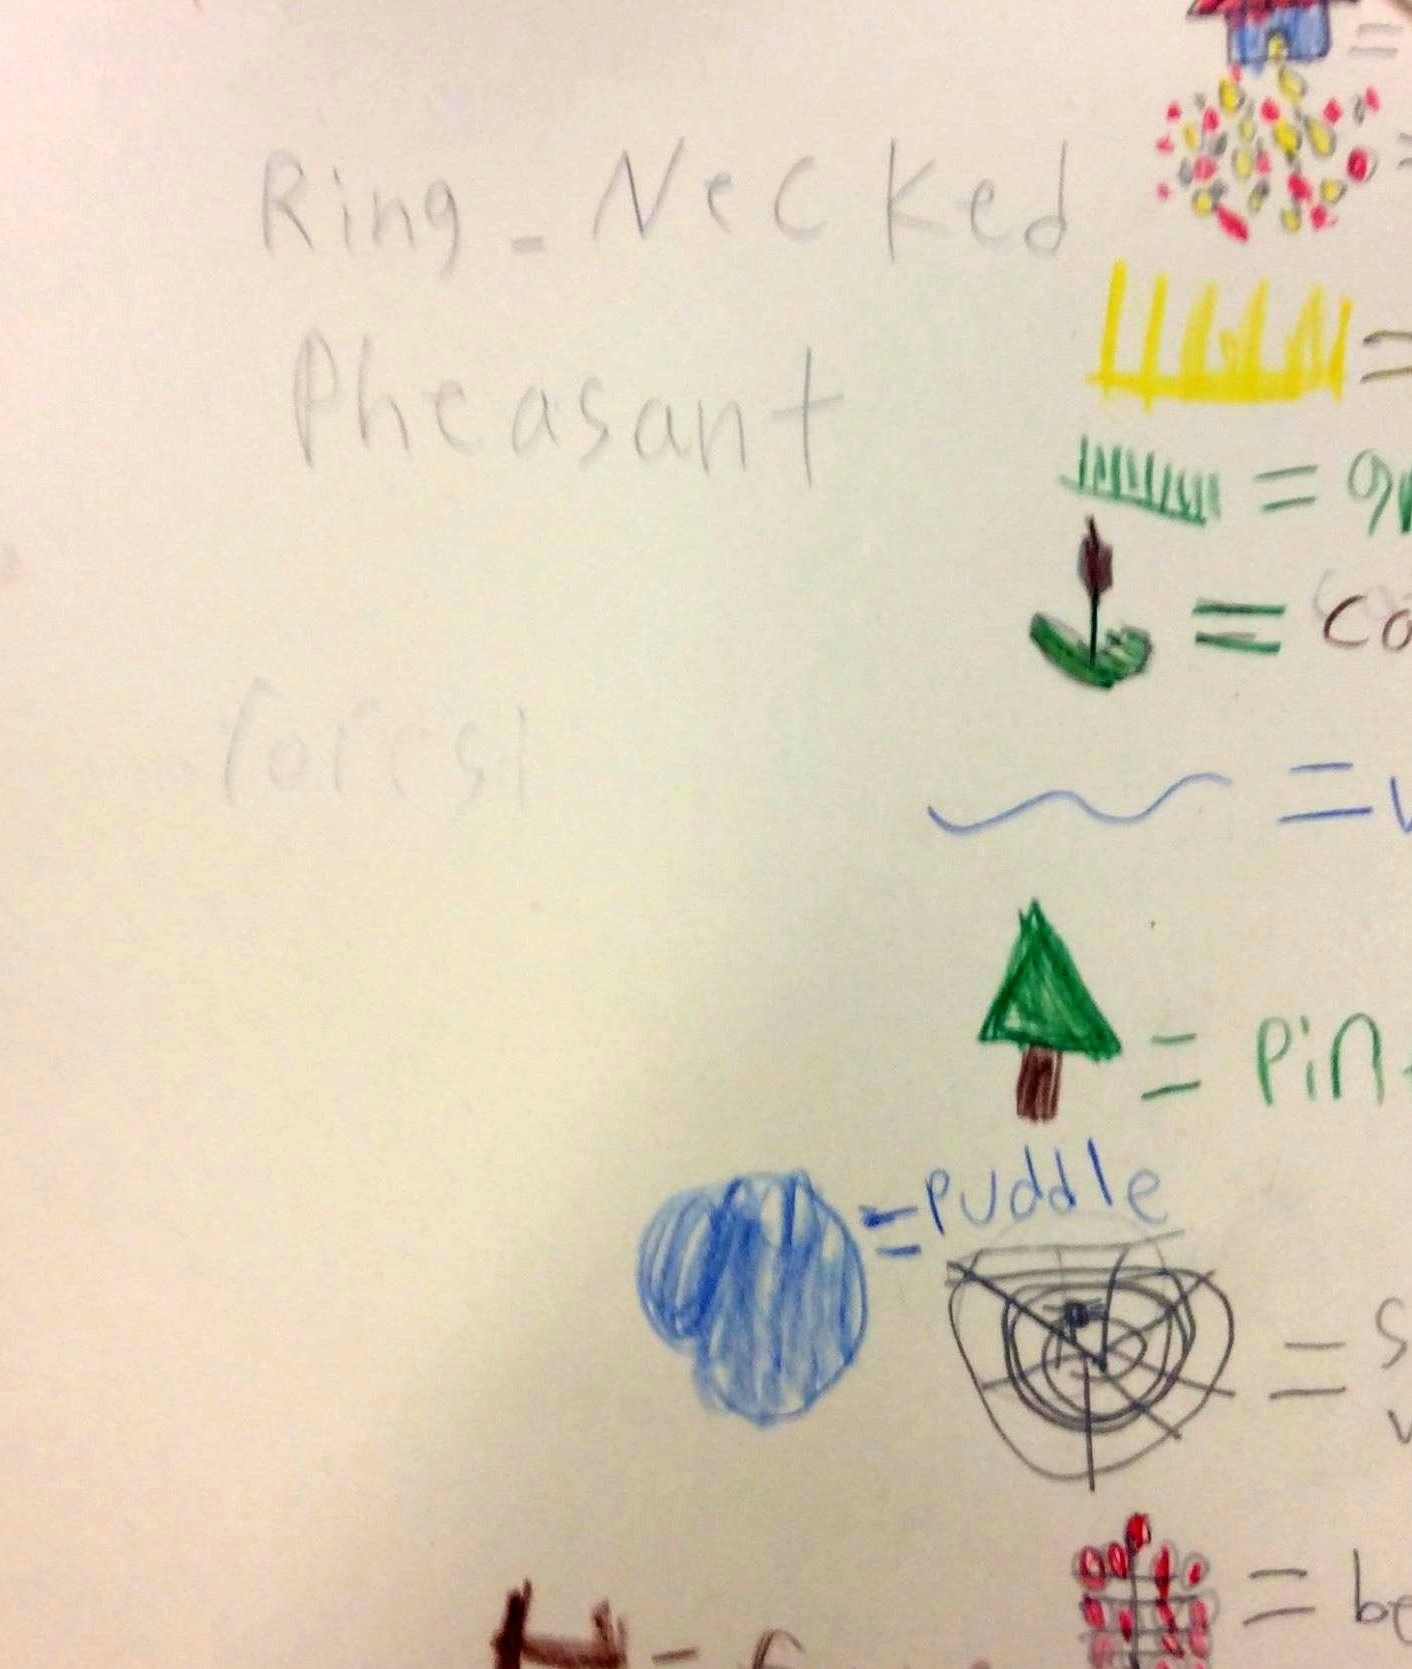 Ring-Necked
Pheasant
forest
=
=
=
= gr
= co
=
= Pin
= puddle
= S
= be